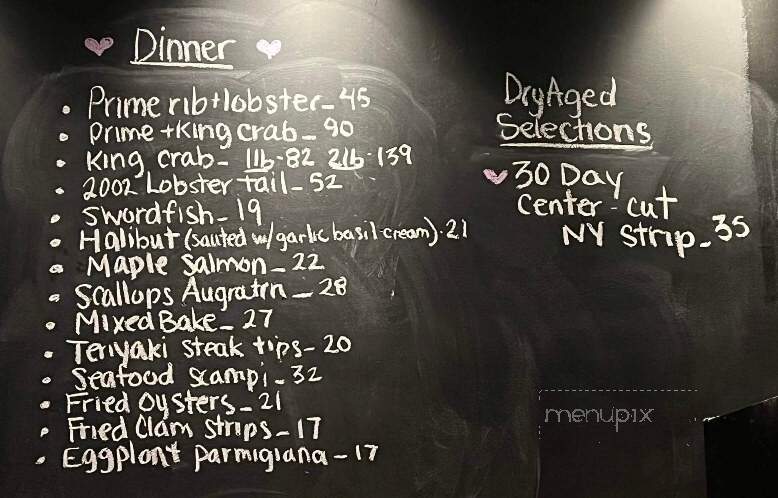 Dinner
• Prime rib+lobster - 45
• Prime + King crab - 90
• King crab - 1lb - 82 2lb - 139
• 2002 Lobster tail - 52
• Swordfish - 19
• Halibut (sauted w/garlic basil cream) - 21
• Maple Salmon - 22
• Scallops Augratrn - 28
• Mixed Bake - 27
• Teriyaki steak tips - 20
• Seafood scampi - 32
• Fried Oysters - 21
• Fried Clam strips - 17
• Eggplant parmigiana - 17
Dry Aged
Selections
30 Day
Center-cut
NY Strip - 35
menupix